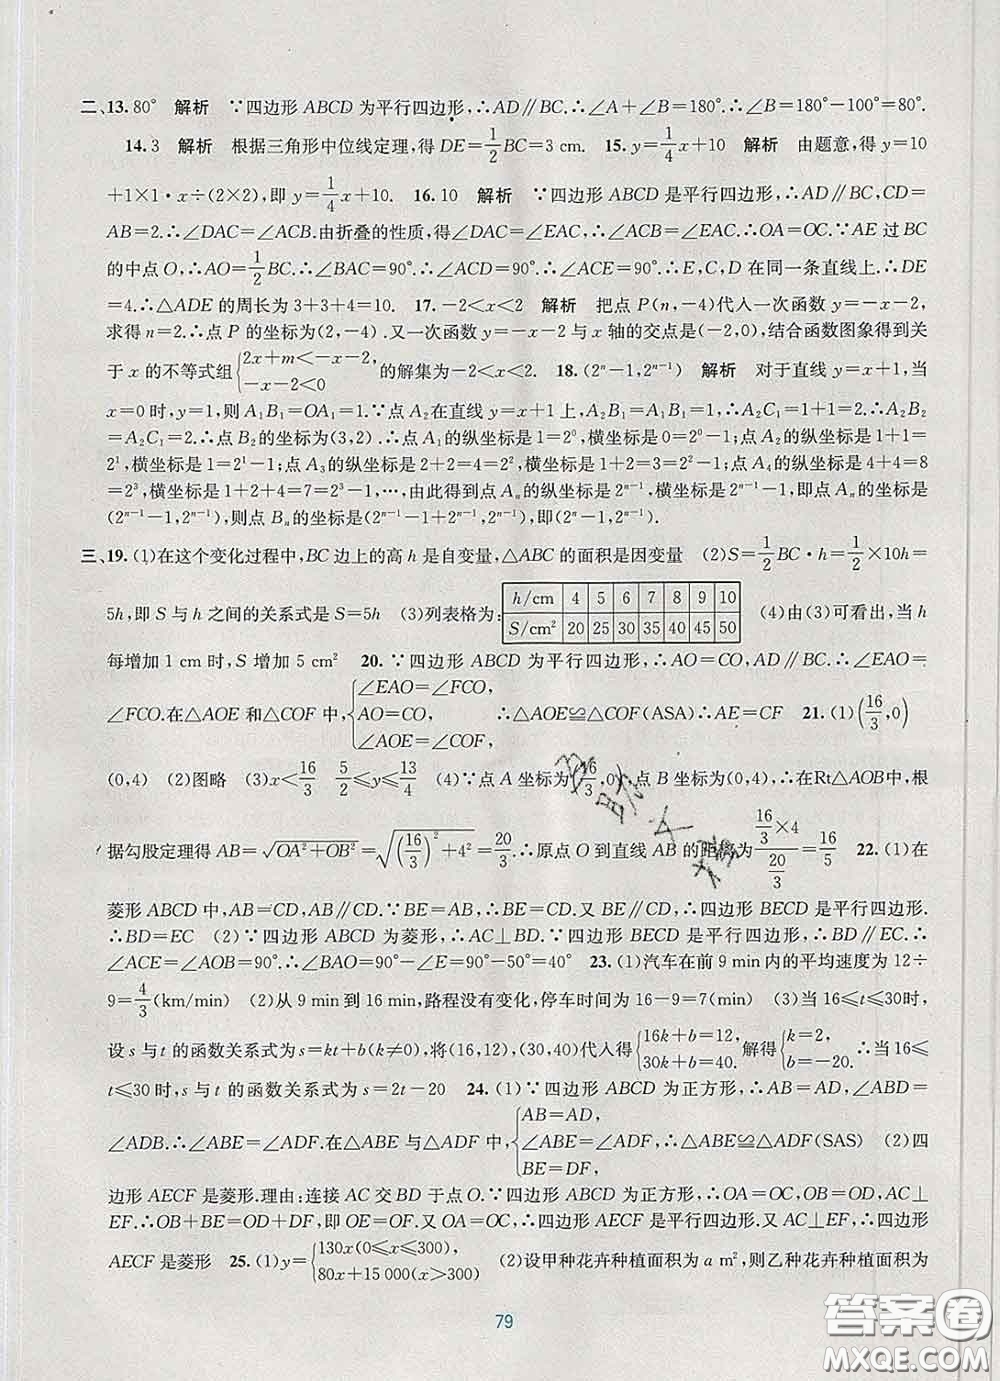 二、13. 80° 解析 ∵四边形 ABCD 为平行四边形,∴AD∥BC.∴∠A+∠B=180°.∴∠B=180°-100°=80°.
14. 3 解析 根据三角形中位线定理,得 DE=1/2BC=3 cm. 15. y=1/4x+10 解析 由题意,得 y=10
+1×1·x÷(2×2),即 y=1/4x+10. 16. 10 解析 ∵四边形 ABCD 是平行四边形,∴AD∥BC,CD=
AB=2.∴∠DAC=∠ACB.由折叠的性质,得∠DAC=∠EAC,∴∠EAC=∠ACB.∴OA=OC.∵AE 过 BC
的中点 O,∴AO=1/2BC.∴∠BAC=90°.∴∠ACD=90°.∴∠ACE=90°.∴E,C,D 在同一条直线上,∴DE
=4.∴△ADE 的周长为 3+3+4=10. 17. -2<x<2 解析 把点 P(n,-4)代入一次函数 y=-x-2,
求得 n=2.∴点 P 的坐标为(2,-4).又一次函数 y=-x-2 与 x 轴的交点是(-2,0),结合函数图象得到关
于 x 的不等式组{2x+m<-x-2, -x-2<0 的解集为-2<x<2. 18. (2ⁿ-1,2ⁿ⁻¹) 解析 对于直线 y=x+1,当
x=0 时,y=1,则 A₁B₁=OA₁=1.∵点 A₂在直线 y=x+1 上,A₂B₁=A₁B₁+OA₁=1+1=2.∴A₂B₂
=A₂C₁=2.∴点 B₂的坐标为(3,2).∴点 A₁的纵坐标是 1=2⁰,横坐标是 0=2⁰-1;点 A₂的纵坐标是 1+1=
2¹,横坐标是 1=2¹-1;点 A₃的纵坐标是 2+2=4=2²,横坐标是 1+2=3=2²-1;点 A₄的纵坐标是 4+4=8
=2³,横坐标是 1+2+4=7=2³-1,…,由此得到点 Aₙ的纵坐标是 2ⁿ⁻¹,横坐标是 2ⁿ⁻¹-1,即点 Aₙ的坐标是
(2ⁿ⁻¹-1,2ⁿ⁻¹),则点 Bₙ的坐标是(2ⁿ⁻¹-1+2ⁿ⁻¹,2ⁿ⁻¹),即(2ⁿ-1,2ⁿ⁻¹).
三、19. (1)在这个变化过程中,BC 边上的高 h 是自变量,△ABC 的面积是因变量 (2)S=1/2BC·h=1/2×10h=
5h,即 S 与 h 之间的关系式是 S=5h (3)列表格为: h/cm 4 5 6 7 8 9 10 S/cm² 20 25 30 35 40 45 50 (4)由(3)可看出,当 h
每增加 1 cm 时,S 增加 5 cm² 20. ∵四边形 ABCD 为平行四边形,∴AO=CO,AD∥BC.∴∠EAO=
∠FCO.在△AOE 和△COF 中,{∠EAO=∠FCO, AO=CO, ∠AOE=∠COF, ∴△AOE≌△COF(ASA)∴AE=CF 21. (1)(16/3,0)
(0,4) (2)图略 (3)x<16/3 5/2≤y≤13/4 (4)∵点 A 坐标为(16/3,0),点 B 坐标为(0,4),∴在Rt△AOB中,根
据勾股定理得 AB=√(OA²+OB²)=√((16/3)²+4²)=20/3.∴原点 O 到直线 AB 的距离为(16/3×4)/(20/3)=16/5 22. (1)在
菱形 ABCD 中,AB=CD,AB∥CD.∵BE=AB,∴BE=CD.又 BE∥CD,∴四边形 BECD 是平行四边形.
∴BD=EC (2)∵四边形 ABCD 为菱形,∴AC⊥BD.∵四边形 BECD 是平行四边形,∴BD∥EC.∴
∠ACE=∠AOB=90°.∴∠BAO=90°-∠E=90°-50°=40° 23. (1)汽车在前 9 min内的平均速度为 12÷
9=4/3(km/min) (2)从 9 min 到 16 min,路程没有变化,停车时间为 16-9=7(min) (3)当 16≤t≤30时,
设 s 与 t 的函数关系式为 s=kt+b(k≠0),将(16,12),(30,40)代入得{16k+b=12, 30k+b=40. 解得{k=2, b=-20. ∴当 16≤
t≤30 时,s 与 t 的函数关系式为 s=2t-20 24. (1)∵四边形 ABCD 为正方形,∴AB=AD,∠ABD=
∠ADB.∴∠ABE=∠ADF.在△ABE 与△ADF 中,{AB=AD, ∠ABE=∠ADF, BE=DF, ∴△ABE≌△ADF(SAS) (2)四
边形 AECF 是菱形.理由:连接 AC 交 BD 于点 O.∵四边形 ABCD 为正方形,∴OA=OC,OB=OD,AC⊥
EF.∴OB+BE=OD+DF,即 OE=OF.又 OA=OC,∴四边形 AECF 是平行四边形.又 AC⊥EF,∴四边形
AECF 是菱形 25. (1)y={130x(0≤x≤300), 80x+15 000(x>300) (2)设甲种花卉种植面积为 a m²,则乙种花卉种植面积为
79
答案圈
MXQE.COM